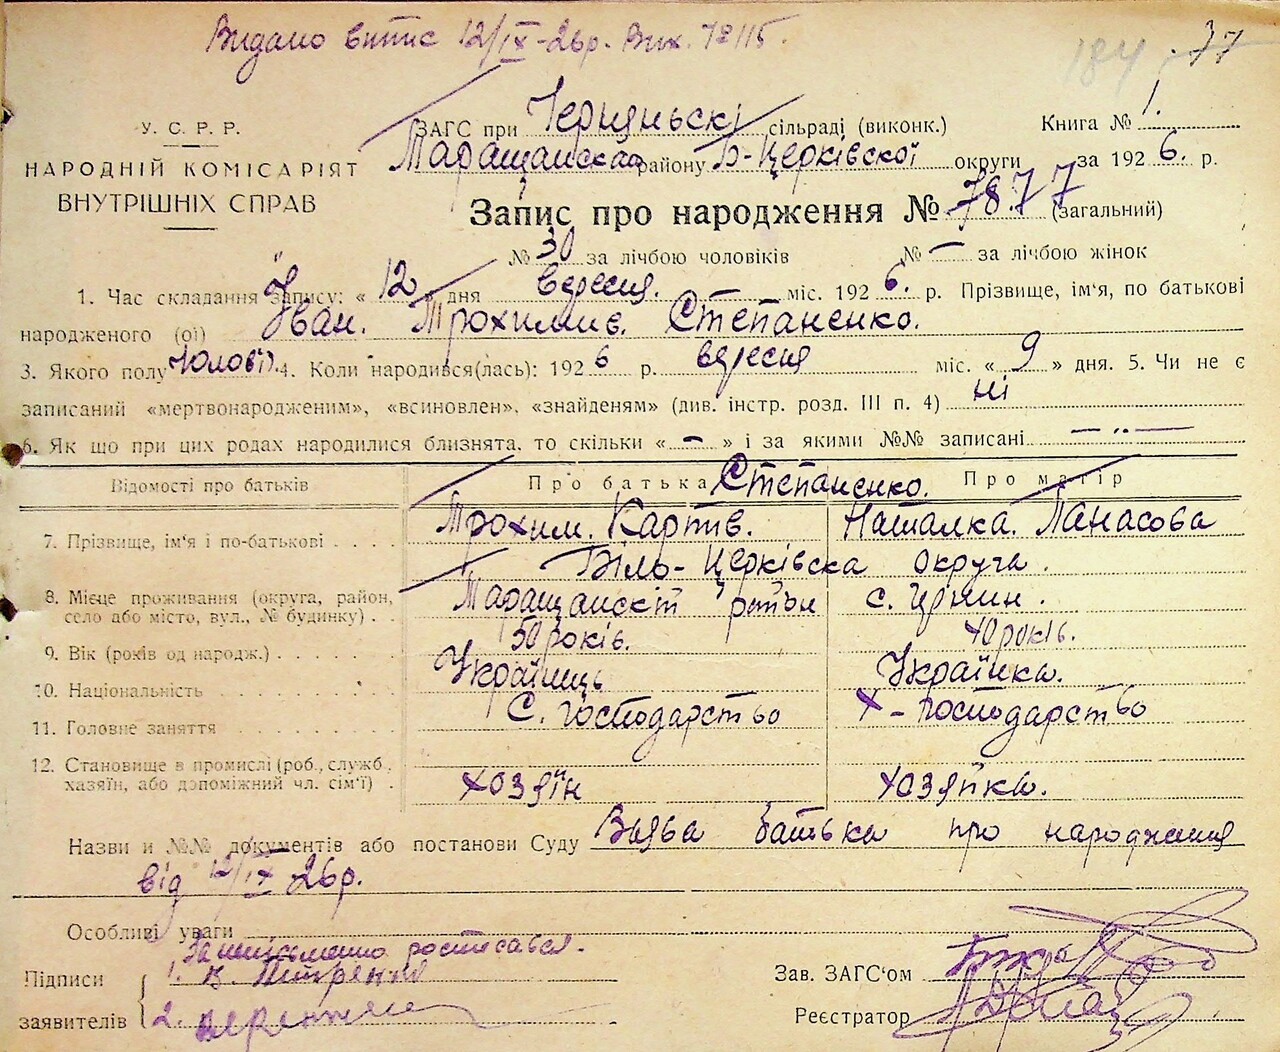 Видано витис 12/IX-26р. Вих. № 115.
184 77
У. С. Р. Р.
НАРОДНІЙ КОМІСАРІЯТ
ВНУТРІШНІХ СПРАВ
ЗАГС при сільраді (виконк.) Книга № 1.
Таращанская району Б-Церківскої округи за 192 6. р.
Запис про народження № 78. 77 (загальний)
№ 30 за лічбою чоловіків № — за лічбою жінок
1. Час складання запису: « 12 » дня вересня. міс. 192 6. р. Прізвище, ім'я, по батькові
народженого (ої) Іван. Трохимив. Степаненко.
3. Якого полу Чолові. 4. Коли народився(лась): 192 6 р. вересня міс. « 9 » дня. 5. Чи не є
записаний «мертвонародженим», «всиновлен», «знайденям» (див. інстр. розд. III п. 4) ні
6. Як що при цих родах народилися близнята, то скільки « – » і за якими №№ записані — „ —
Відомості про батьків Про батька Степаненко. Про матір
7. Прізвище, ім'я і по-батькові . . . . Трохим. Карпів. Наталка. Панасова
Біль-Церківска округа.
8. Місце проживання (округа, район, село або місто, вул., № будинку) . . Таращанскіт ратон с. Цнин.
9. Вік (років од народж.) . . . . . . 50 років. 40 років.
10. Національність . . . . . . . . Українць Українка.
11. Головне заняття . . . . . . . . С. господарство Х-господарство
12. Становище в промислі (роб., служб., хазяїн, або допоміжний чл. сім'ї) . хозяїн хозяйка.
Назви и №№ документів або постанови Суду Выява батька про народжания
від 12/IX 26р.
Особливі уваги
росписався.
Підписи
заявителів
1. 
2.
Зав. ЗАГС'ом
Реєстратор